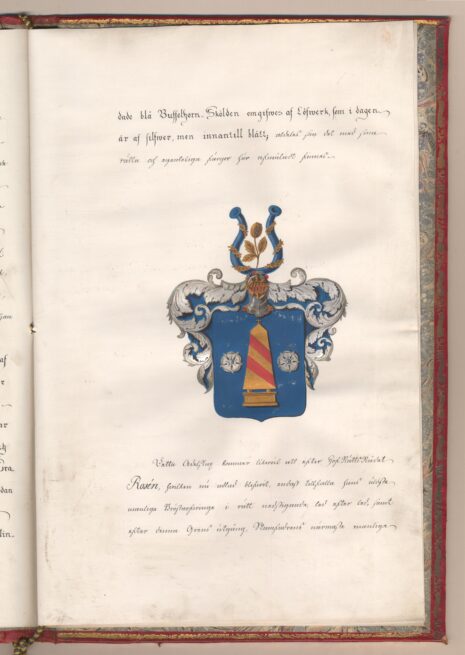 dade blå Buffelhorn. Skölden omgifves af Löfwerk, som i dagen
är af silfwer, men innantill blått; aldeles som det med sina
rätta och egenteliga färgor här afmåladt finnes.
Detta Adelskap kommer likwäl att efter Hof-Rätts-Rådet
Rosén, sedan må endast tillfalla dess äldste
manliga Bröstarfwinge i rätt nedstigande led efter led, samt
efter denna Grens utgång, Stamfadrens närmaste manliga
af